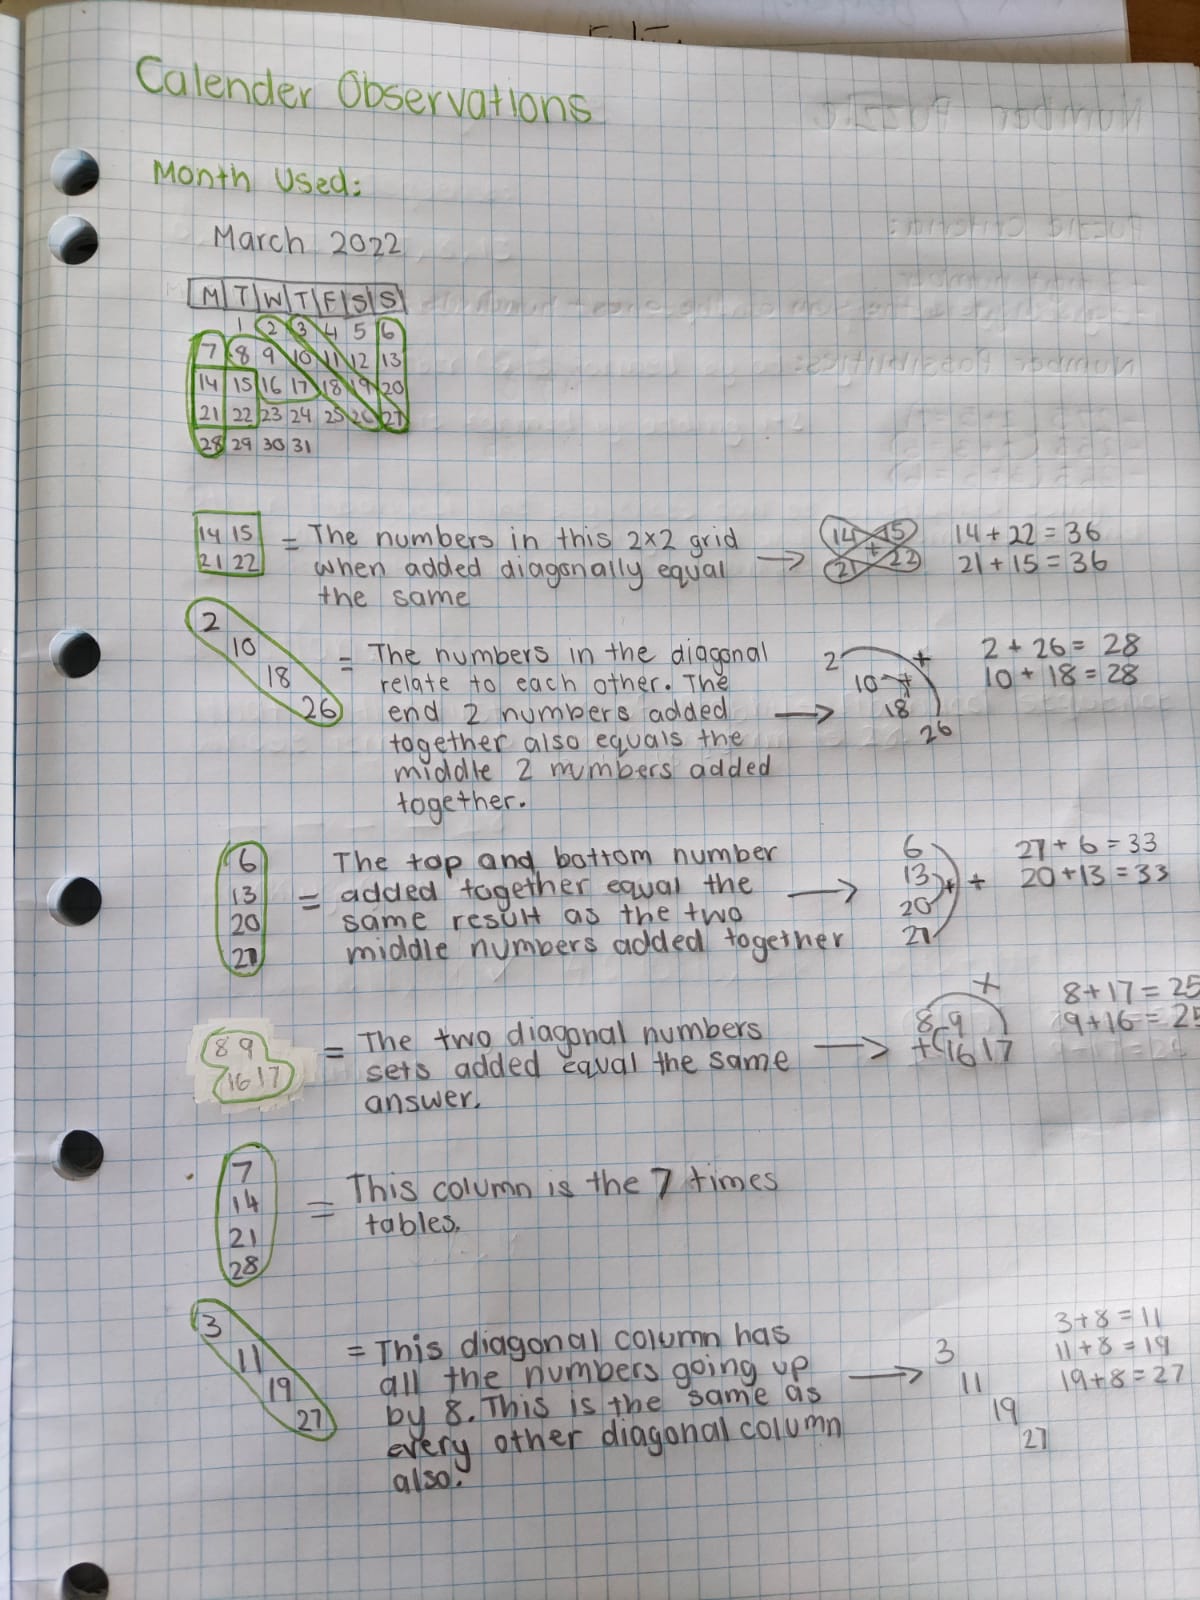 Calender Observations
Month Used:
March 2022
M T W T F S S
1 2 3 4 5 6
7 8 9 10 11 12 13
14 15 16 17 18 19 20
21 22 23 24 25 26 27
28 29 30 31
14 15 = The numbers in this 2x2 grid → 14 + 15 14 + 22 = 36
21 22 when added diagonally equal 21 22 21 + 15 = 36
the same
2 10 18 26 = The numbers in the diagonal 2 + 2 + 26 = 28
relate to each other. The 10 + 10 + 18 = 28
end 2 numbers added → 18
together also equals the 26
middle 2 numbers added
together.
6 The top and bottom number 6 27 + 6 = 33
13 = added together equal the → 13 + + 20 + 13 = 33
20 same result as the two 20
27 middle numbers added together 27
8 9 = The two diagonal numbers + 8 9 8 + 17 = 25
16 17 sets added equal the same → + 16 17 9 + 16 = 25
answer.
7
14 = This column is the 7 times
21 tables.
28
3 3 + 8 = 11
11 = This diagonal column has 3 11 + 8 = 19
19 all the numbers going up → 11 19 + 8 = 27
27 by 8. This is the same as 19
every other diagonal column 27
also.